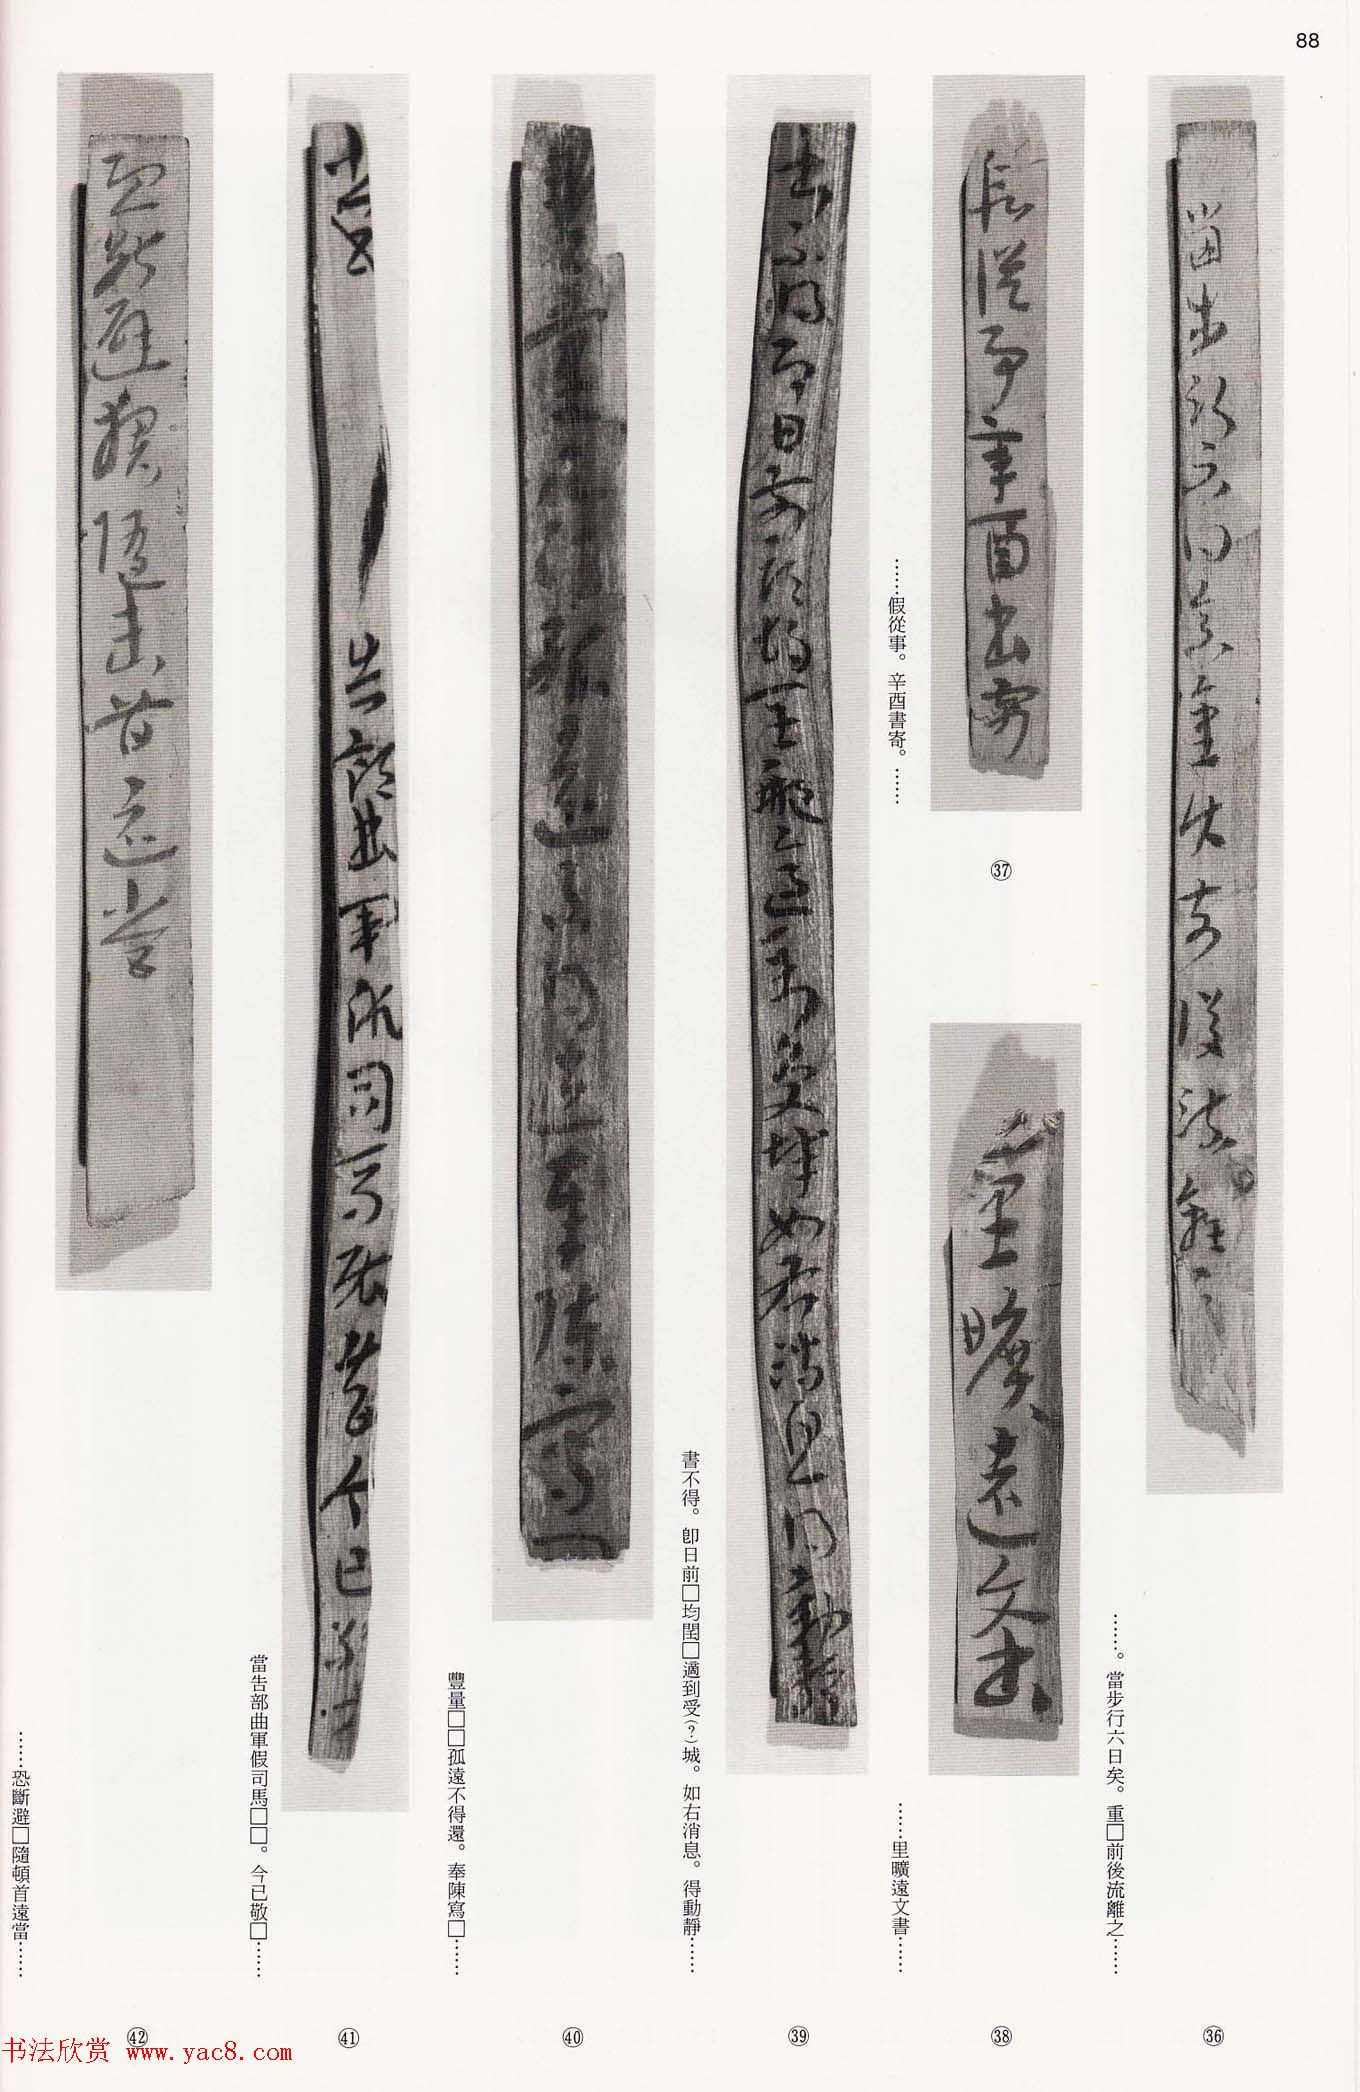 88
㊱
……。當步行六日矣。重□前後流離之……
㊲
……假從事。辛酉書寄。……
㊳
……里曠遠文書……
㊴
書不得。卽日前□均閏□適到受(?)城。如右消息。得動靜……
㊵
豐量□□孤遠不得還。奉陳寫□……
㊶
當告部曲軍假司馬□□。今已敬□……
㊷
……恐斷避□隨頓首遠當……
书法欣赏 www.yac8.com